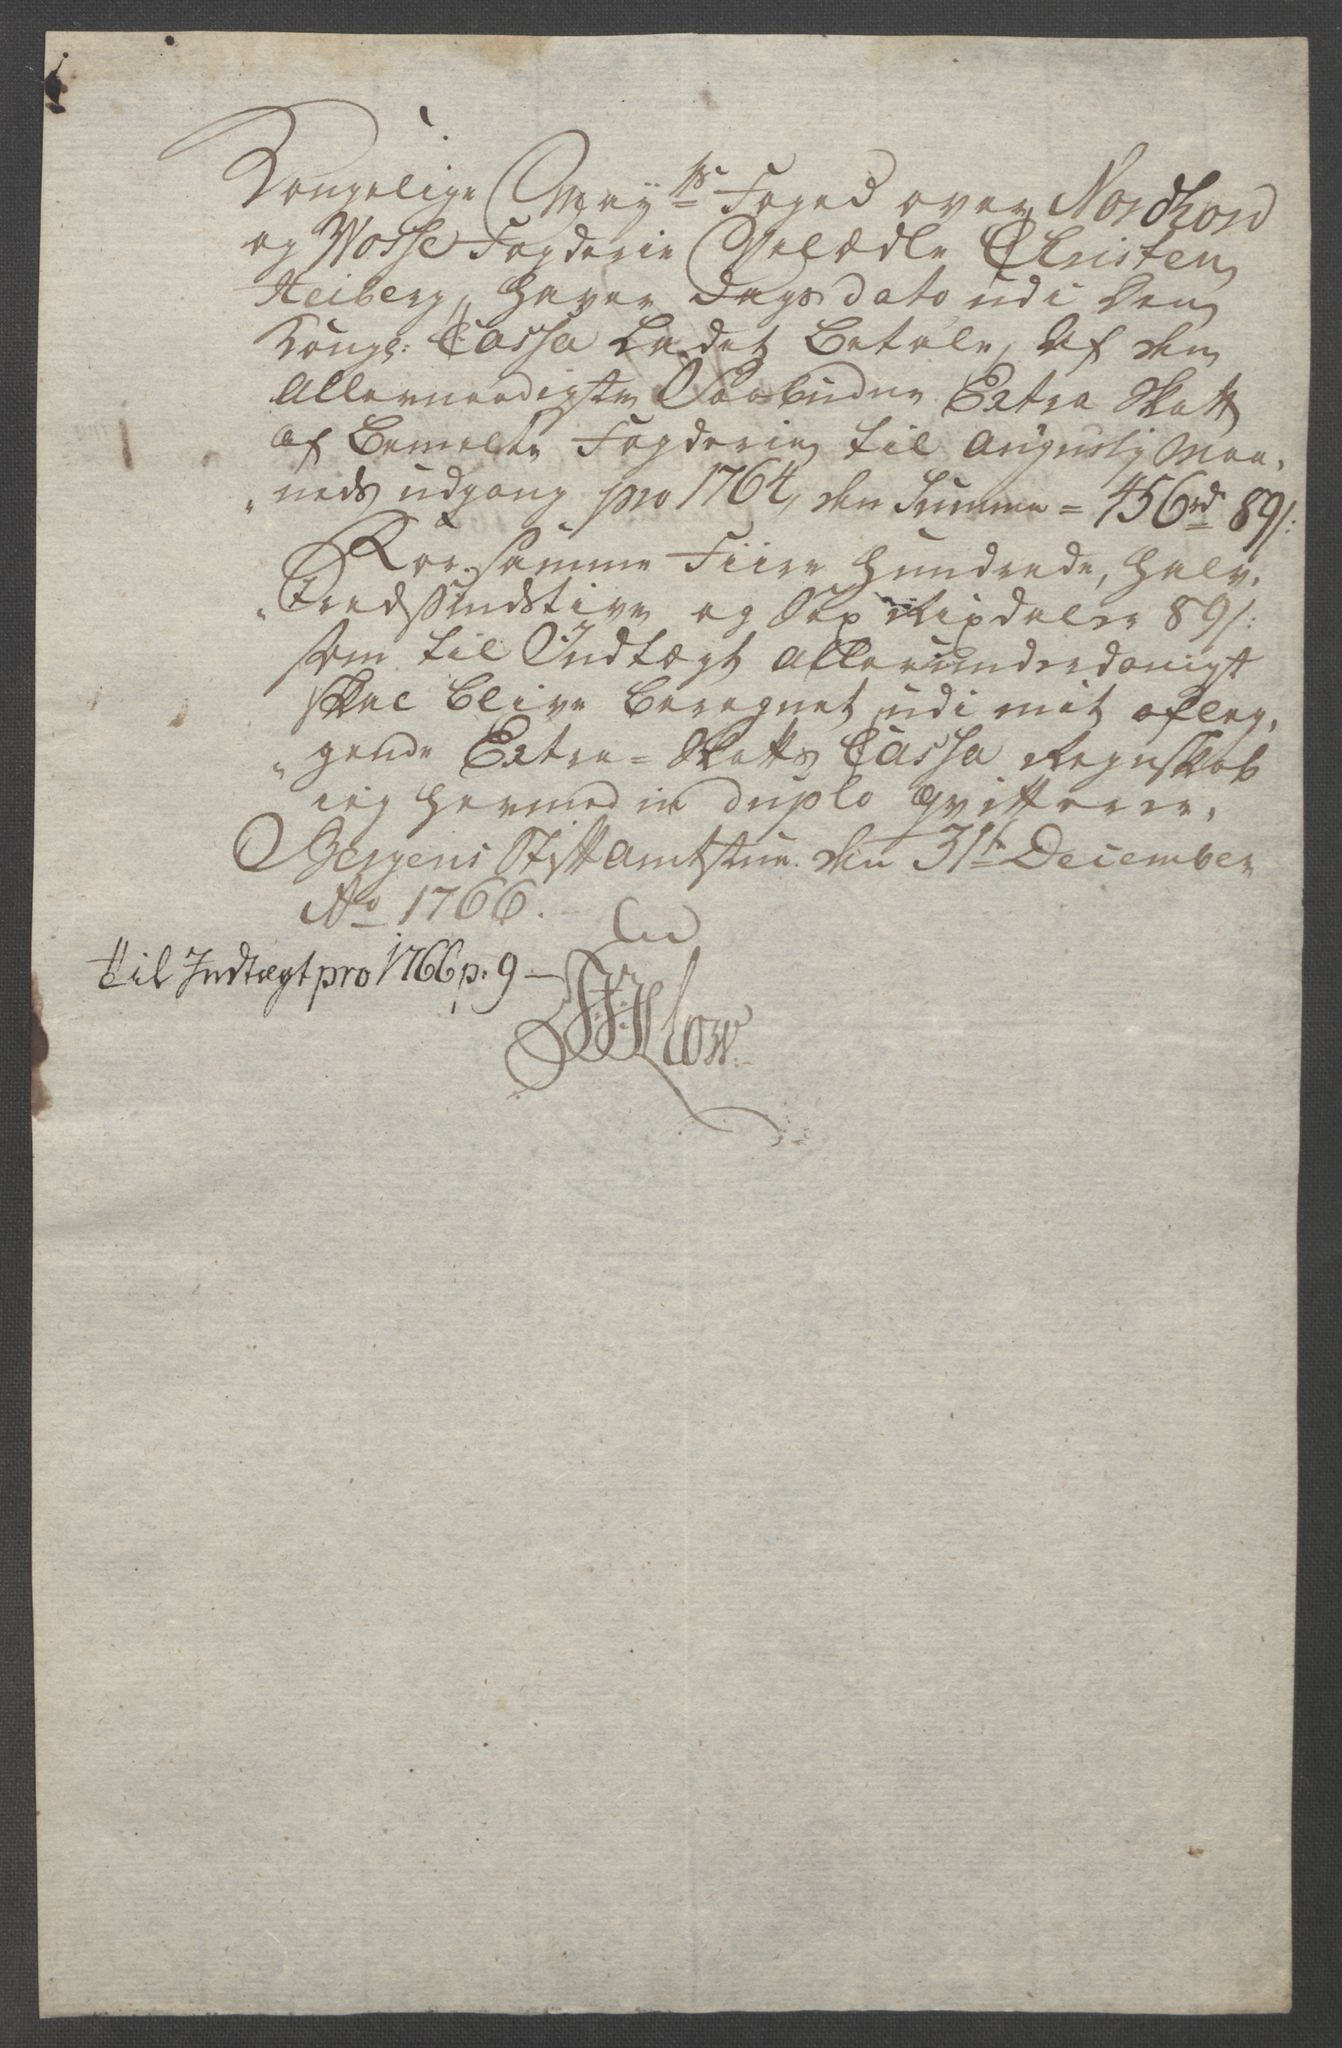 Kongelige May:ts Foged over Nordhord
og Vosse Fogderie Velædle Christen
Heiberg, haver Dags dato udi den
Kongl: Cassa Ladet Betale, Af den
Allernaadigste Paabudne Extra Skatt
af Bemelte Fogderie, til Augustj Maa,
"neds udgang pro 1764, den Summa = 456rd 89/:
For samme Fiire hundrede, halv,
"Tredsindstive og Sex Rixdaler 89/:
som til Indtægt allerunderdanigst
skal blive beregnet udi mit aflæg,
"gende Extra=Skatts Cassa Regnskab
ieg hermed in duplo qvitterer,
Bergens Stiftamtstue den 31te December
Ao 1766.
til Indtægt pro 1766 p: 9 —